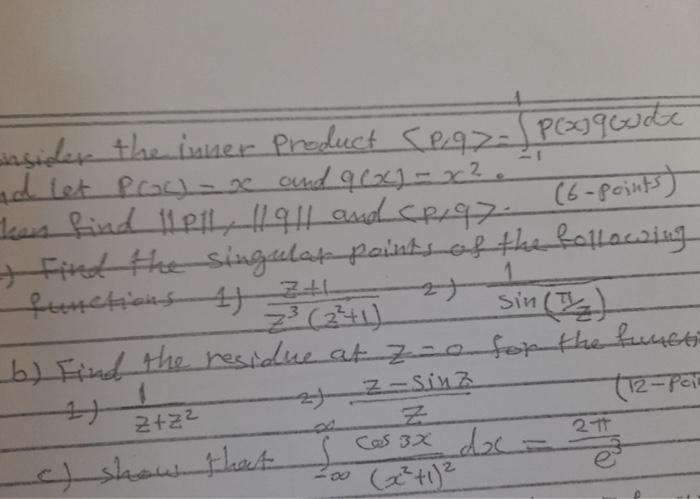 onsider the inner Product <P,q> = ∫_{-1}^{1} P(x)q(x)dx
nd let P(x) = x and q(x) = x².
hen find ||P||, ||q|| and <P,q>. (6-points)
) Find the singular points of the following
functions 1) z+1 / z³(z²+1) 2) 1 / sin(π/z)
b) Find the residue at z=0 for the functi
1) 1 / z+z² 2) z-sinz / z (12-poi
c) show that ∫_{-∞}^{∞} cos3x / (x²+1)² dx = 2π / e³